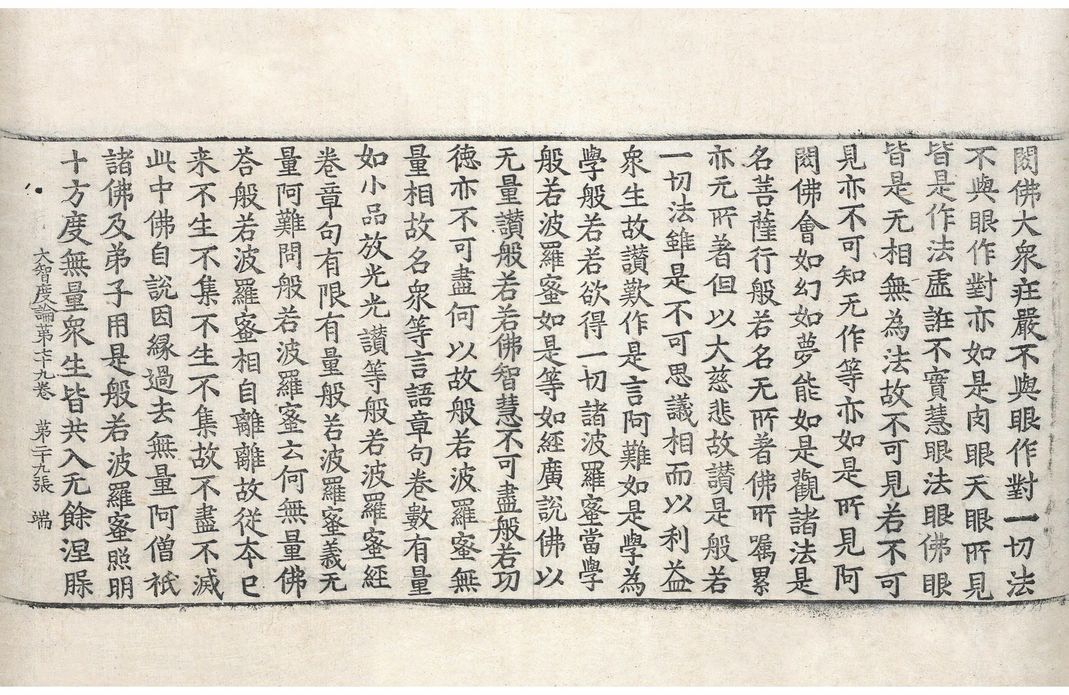 閦佛大衆疘嚴不與眼作對一切法
不與眼作對亦如是肉眼天眼所見
皆是作法虛誑不實慧眼法眼佛眼
皆是无相無為法故不可見若不可
見亦不可知无作等亦如是所見阿
閦佛會如幻如夢能如是觀諸法是
名菩薩行般若名无所著佛所囑累
亦无所著但以大慈悲故讃是般若
一切法雖是不可思議相而以利益
衆生故讃歎作是言阿難如是學為
學般若若欲得一切諸波羅蜜當學
般若波羅蜜如是等如經廣說佛以
无量讃般若若佛智慧不可盡般若功
德亦不可盡何以故般若波羅蜜無
量相故名衆等言語章句卷數有量
如小品放光光讃等般若波羅蜜經
卷章句有限有量般若波羅蜜義无
量阿難問般若波羅蜜云何無量佛
荅般若波羅蜜相自離離故從本已
来不生不集不生不集故不盡不滅
此中佛自說因縁過去無量阿僧祇
諸佛及弟子用是般若波羅蜜照明
十方度無量衆生皆共入无餘涅槃
大智度論第七十九卷 第三十九張 端